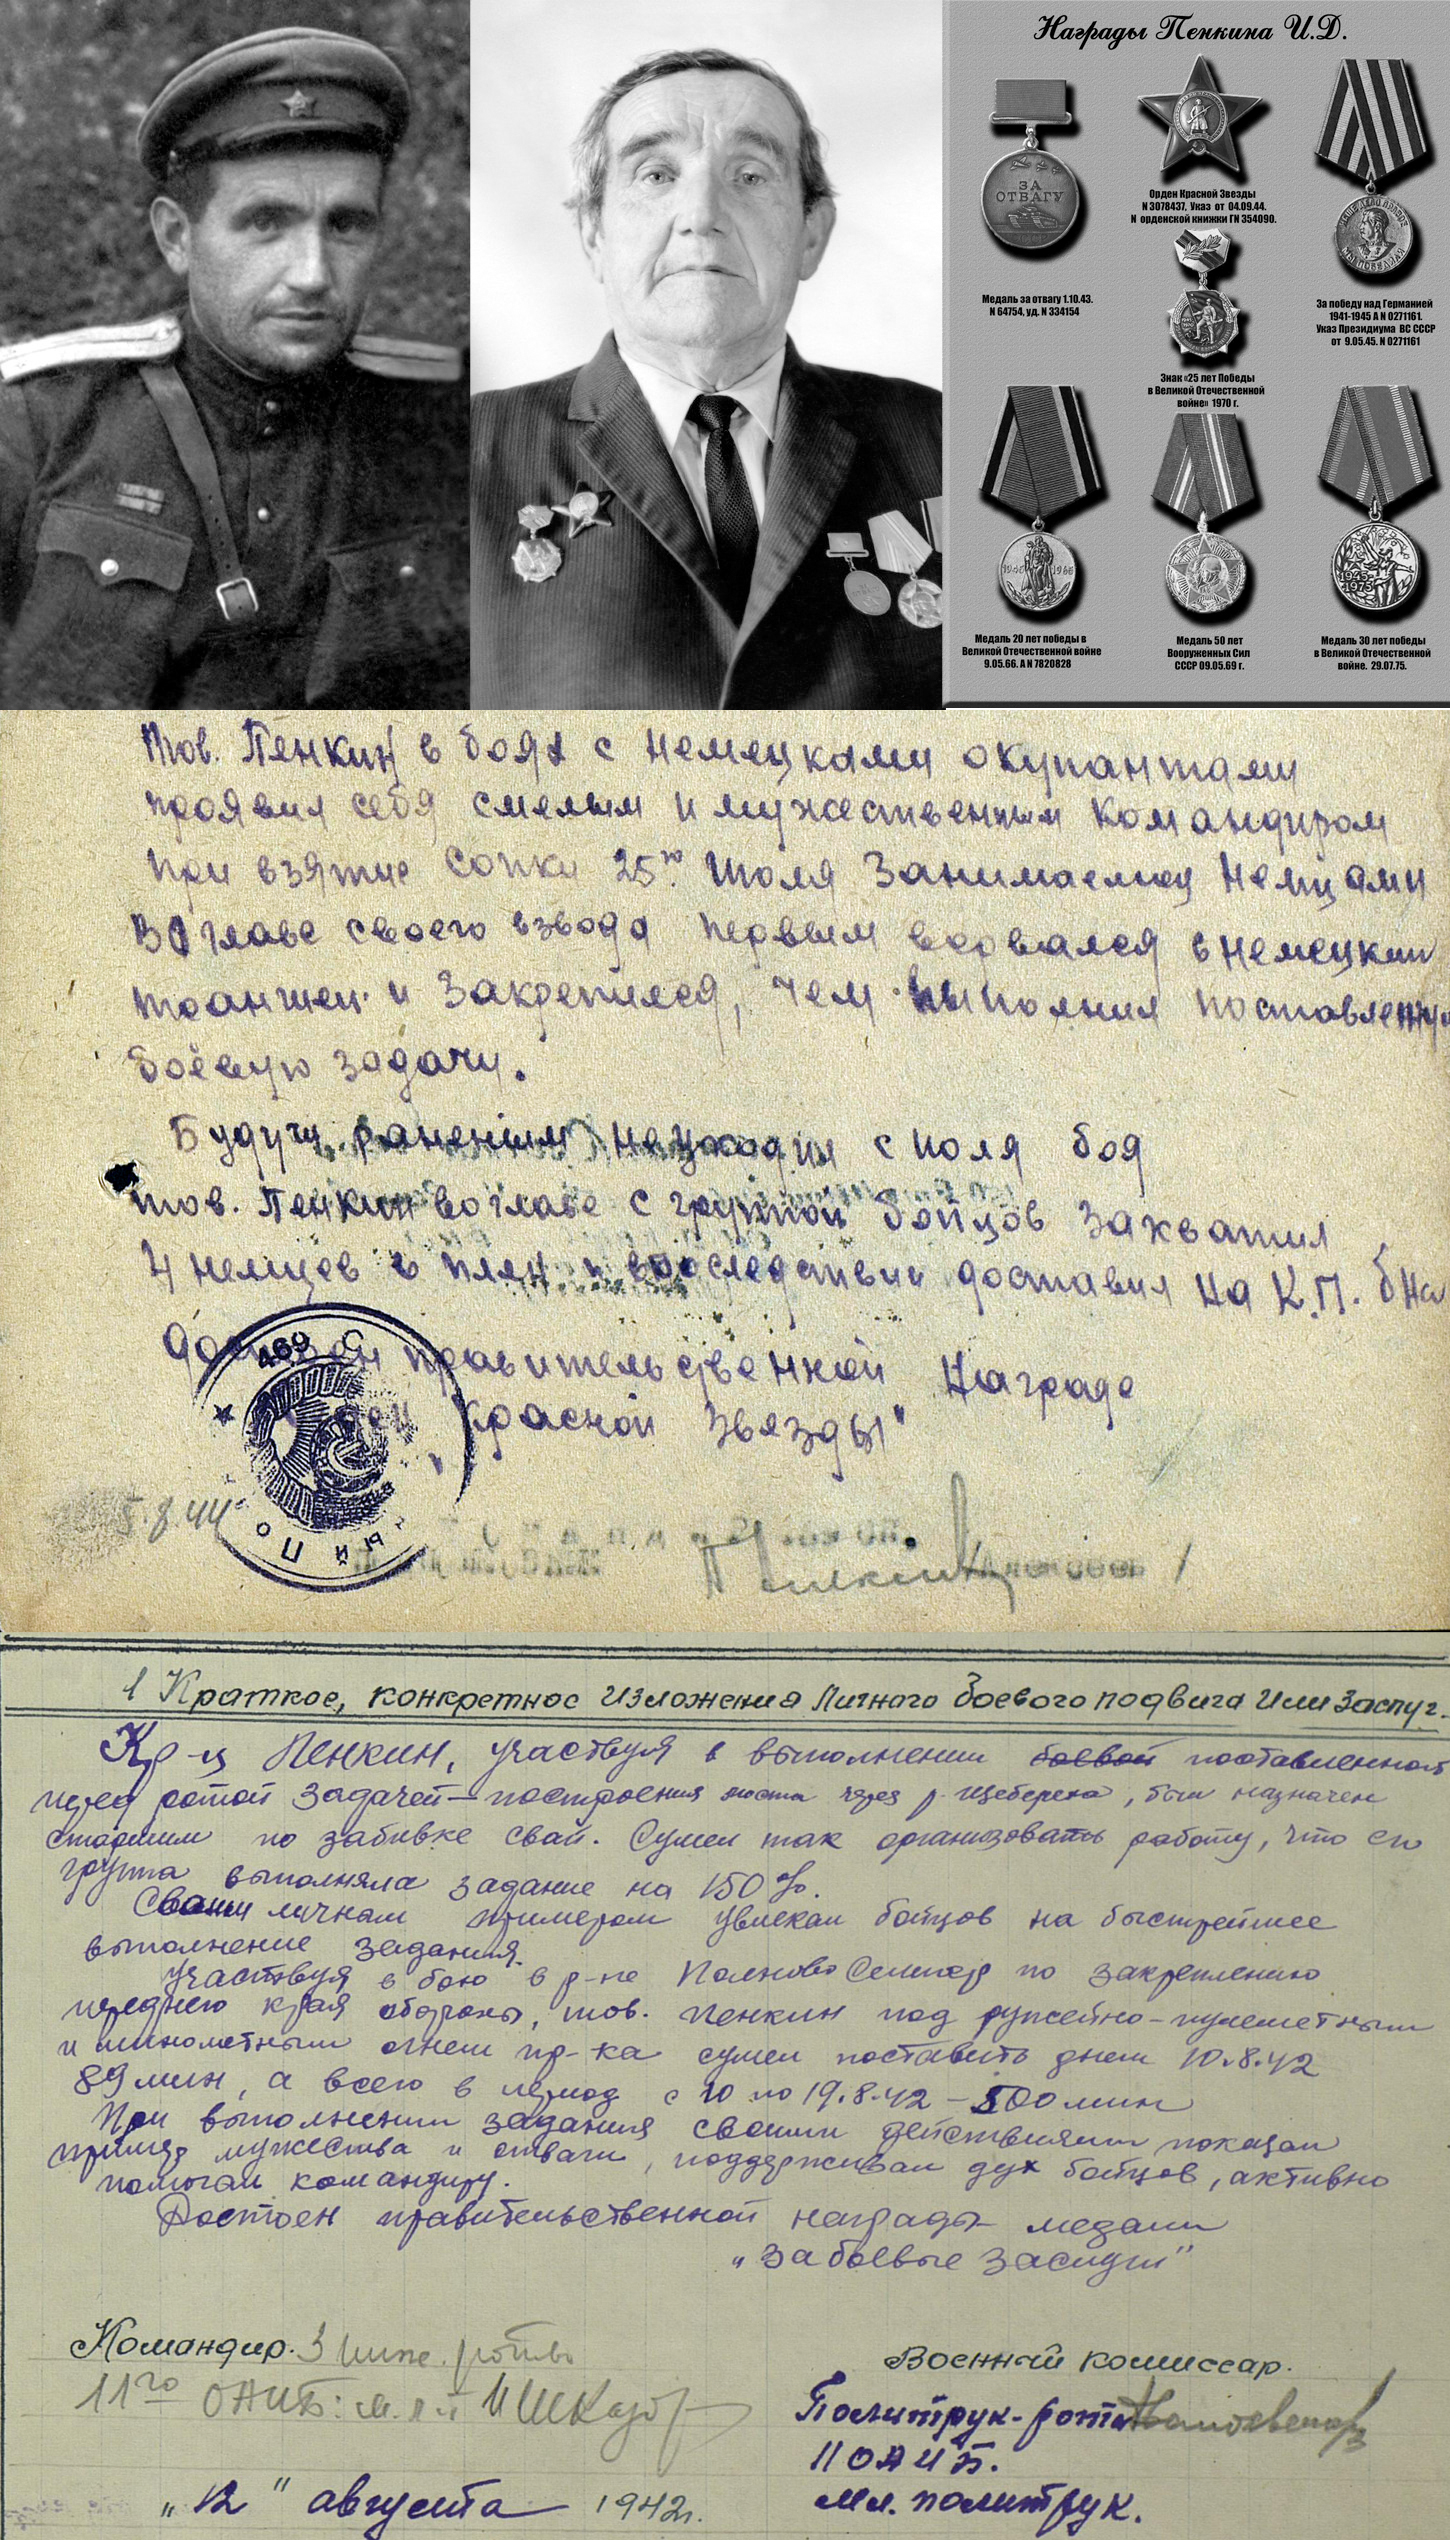 Награды Пенкина И.Д.
ЗА
ОТВАГУ
Орден Красной Звезды
N 3078437. Указ от 04.09.44.
N орденской книжки ГN 354090.
НАШЕ ДЕЛО ПРАВОЕ
МЫ ПОБЕДИЛИ
Медаль за отвагу 1.10.43.
N 64754, уд. N 334154
За победу над Германией
1941-1945 А N 0271161.
Указ Президиума ВС СССР
от 9.05.45. N 0271161
Знак «25 лет Победы
в Великой Отечественной
войне» 1970 г.
1945 1965
1945-
1975
Медаль 20 лет победы в
Великой Отечественной войне
9.05.66. А N 7820828
Медаль 50 лет
Вооруженных Сил
СССР 09.05.69 г.
Медаль 30 лет победы
в Великой Отечественной
войне. 29.07.75.
тов. Пенкин в боях с немецками окупантами
проявил себя смелым и мужественным командиром
При взятие сопки 25го Июля Занимаемой немцами
во главе своего взвода первым ворвался в немецкии
траншеи и закрепился, чем выполнил поставленную
боевую задачу.
Будучи раненым неуходил с поля боя
тов. Пенкин во главе с группой бойцов захватил
4 немцев в плен и впоследствии доставил на К.П. б-на
достоен правительственной награде
"Красной Звезды"
469 С
ЫЙ ПО
5.8.44
1 Краткое, конкретное изложения личного боевого подвига или заслуг.
Кр-ц Пенкин, участвуя в выполнении боевой поставленной
перед ротой задачей - построения моста через р. Щеберека, был назначен
старшим по забивке свай. Сумел так организовать работу, что его
группа выполняла задание на 150%.
Своим личным примером увлекал бойцов на быстрейшее
выполнение задания.
Участвуя в бою в р-не Полново Селигер по закреплению
переднего края обороны, тов. Пенкин под ружейно-пулеметным
и минометным огнем пр-ка сумел поставить днем 10.8.42
89 мин, а всего в период с 10 по 19.8.42 - 500 мин
При выполнении задания своими действиями показал
пример мужества и отваги, поддерживал дух бойцов, активно
помогал командиру.
Достоен правительственной награды медали
"За боевые заслуги"
Командир. 3 инж. роты
11го ОАИБ: м. л-т
Военный комиссар.
Политрук-роты
11 ОАИБ.
мл. политрук.
"12" августа 1942г.